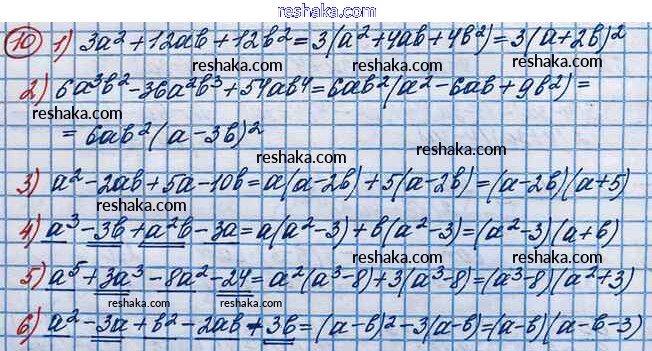 reshaka.com
10 1) 3a² + 12ab + 12b² = 3(a² + 4ab + 4b²) = 3(a + 2b)²
reshaka.com
2) 6a³b² - 36a²b³ + 54ab⁴ = 6ab²(a² - 6ab + 9b²) =
reshaka.com reshaka.com
= 6ab²(a - 3b)²
reshaka.com
reshaka.com
3) a² - 2ab + 5a - 10b = a(a - 2b) + 5(a - 2b) = (a - 2b)(a + 5)
reshaka.com reshaka.com
4) a³ - 3b + a²b - 3a = a(a² - 3) + b(a² - 3) = (a² - 3)(a + b)
reshaka.com
5) a⁵ + 3a³ - 8a² - 24 = a²(a³ - 8) + 3(a³ - 8) = (a³ - 8)(a² + 3)
reshaka.com reshaka.com
6) a² - 3a + b² - 2ab + 3b = (a - b)² - 3(a - b) = (a - b)(a - b - 3)
reshaka.com